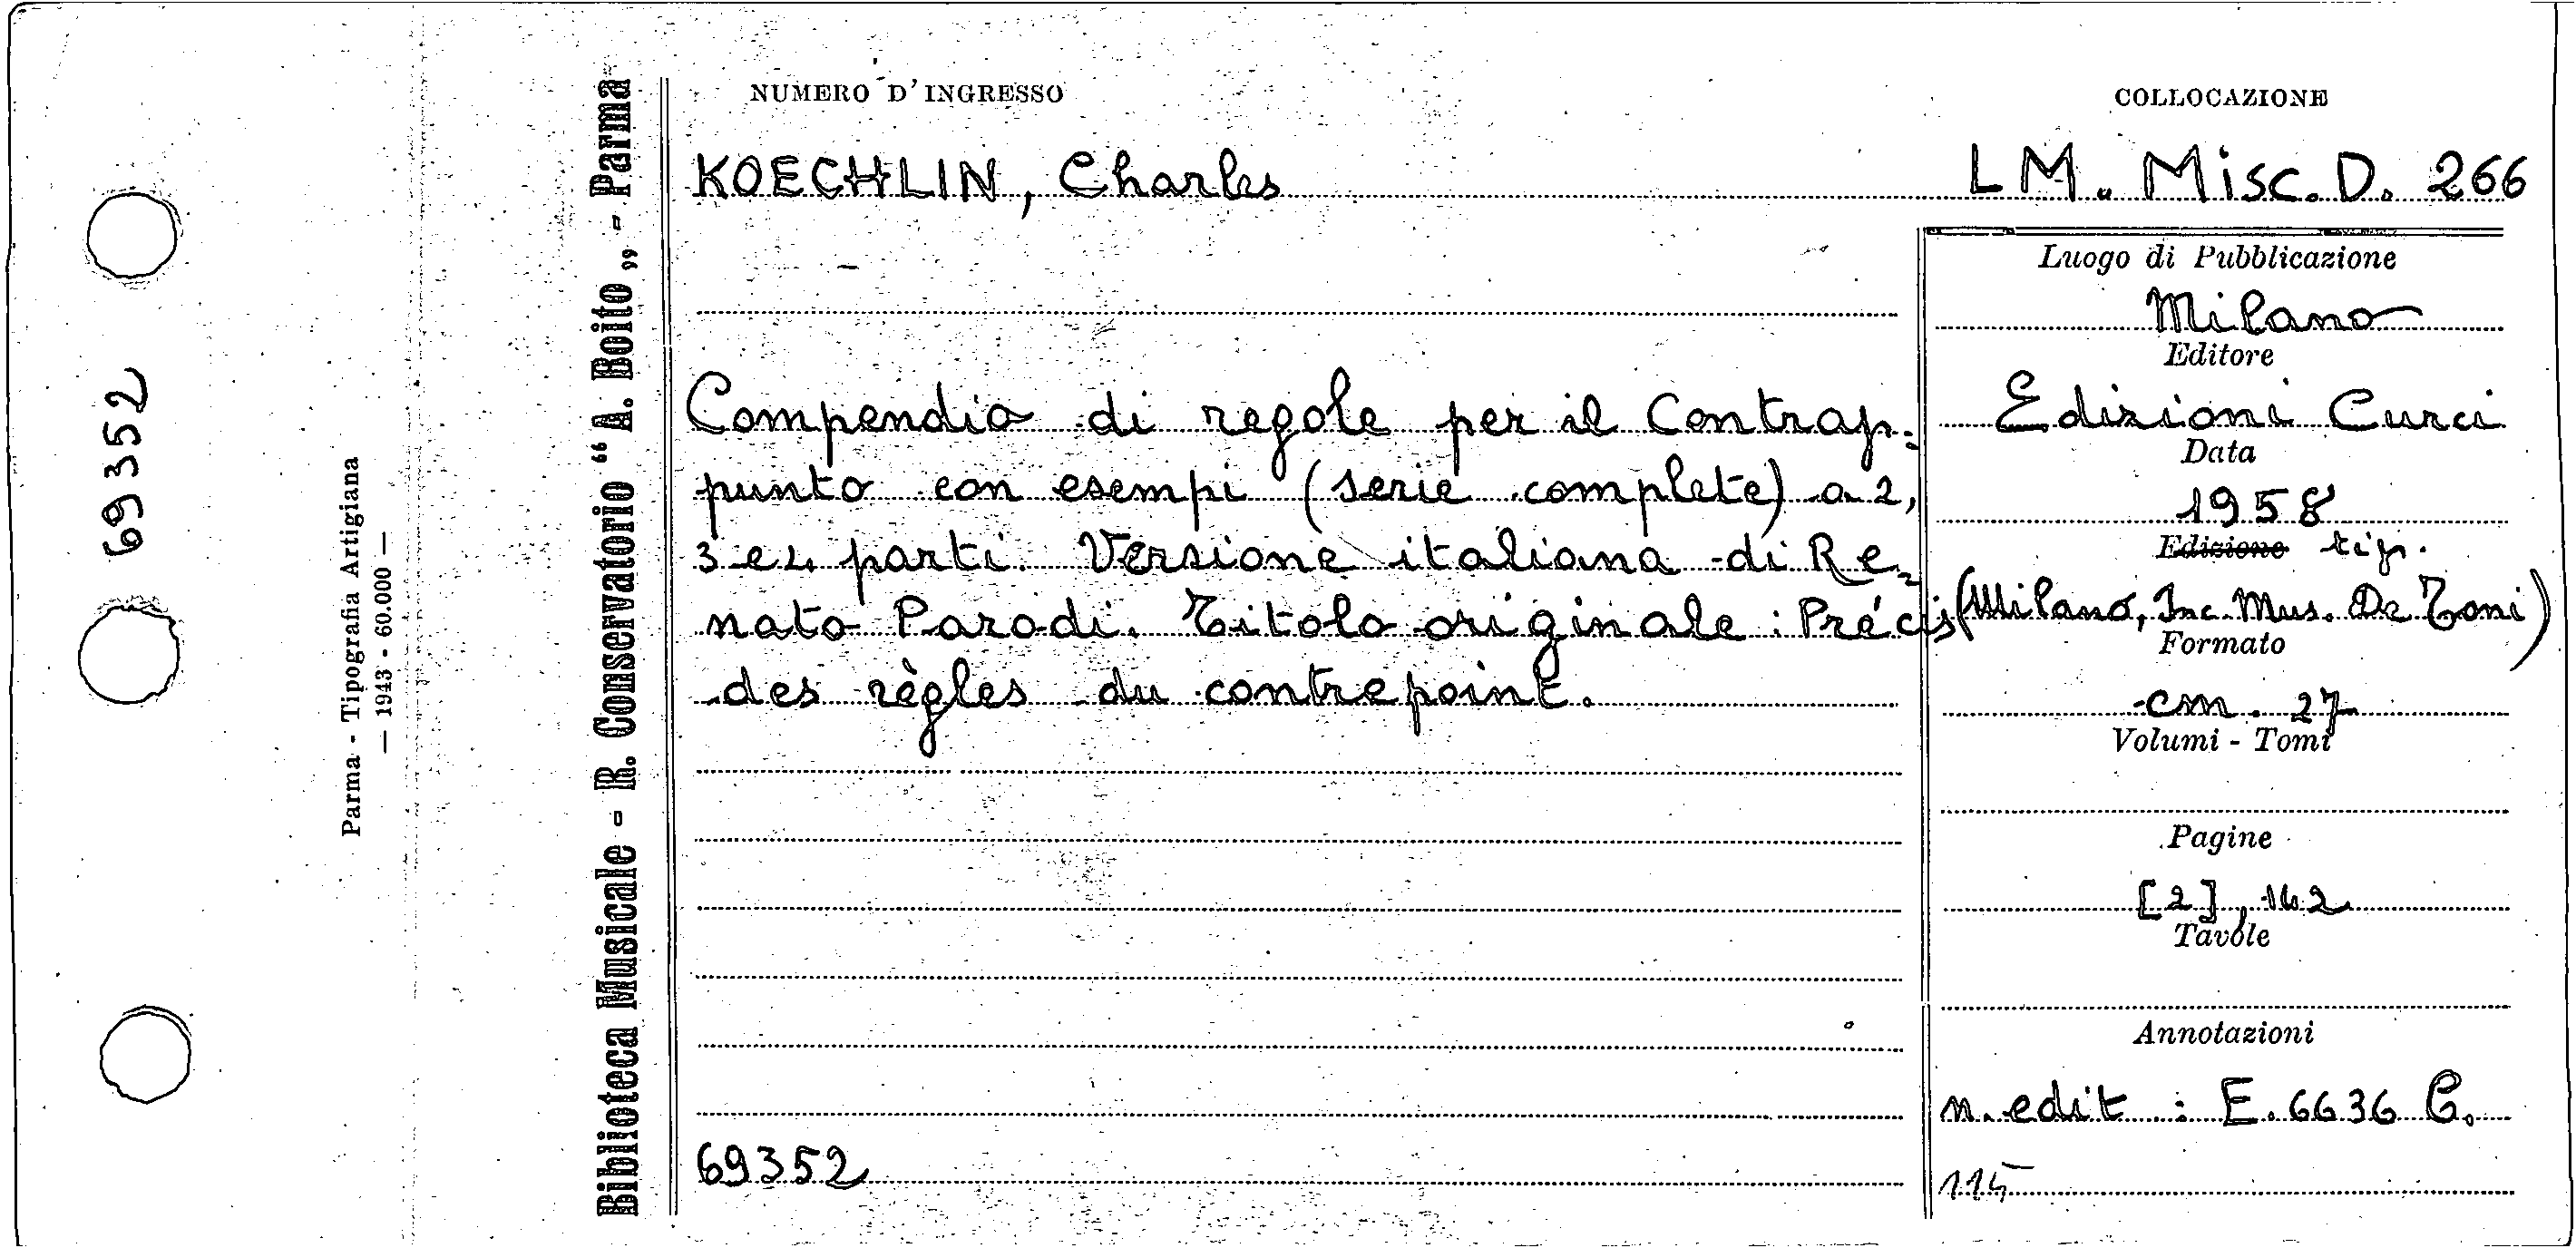 NUMERO D'INGRESSO
COLLOCAZIONE
KOECHLIN, Charles
LM. Misc. D. 266
Compendio di regole per il Contrap=
punto con esempi (serie complete) a 2,
3 e 4 parti. Versione italiana di Re=
nato Parodi. Titolo originale: Précis
des règles du contrepoint.
69352
Luogo di Pubblicazione
Milano
Editore
Edizioni Curci
Data
1958
Edizione tip.
(Milano, Inc. Mus. De Toni)
Formato
cm. 27
Volumi - Tomi
Pagine
[2], 142
Tavole
Annotazioni
n. edit : E. 6636 C.
115
Biblioteca Musicale - R. Conservatorio “A. Boito„ - Parma
Parma - Tipografia Artigiana
— 1943 - 60.000 —
69352